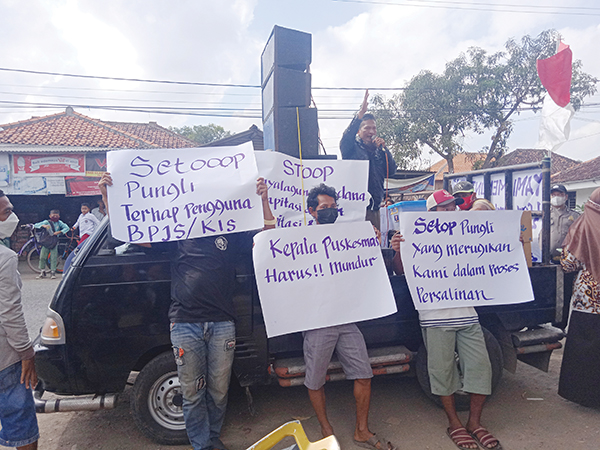 Setooop
Pungli
Terhap Pengguna
BPJS/KIS
STOOP
Kepala Puskesmas
Harus!! Mundur
Setop Pungli
Yang Merugikan
Kami dalam Proses
Persalinan